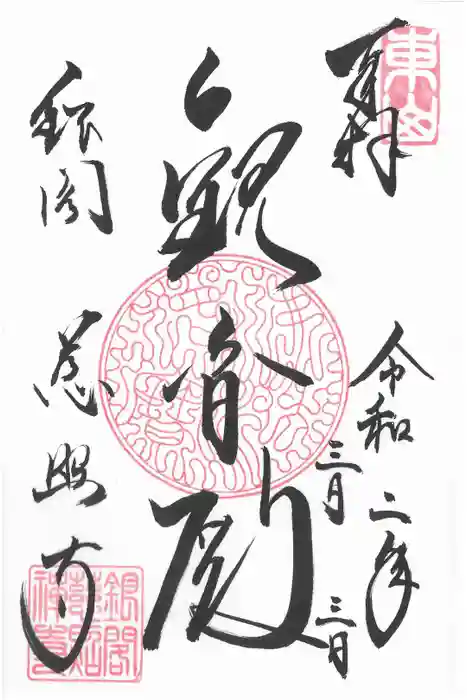 奉拝
東山
令和二年
三月
三日
観音殿
銀閣
慈照寺
銀閣
慈照
禅寺